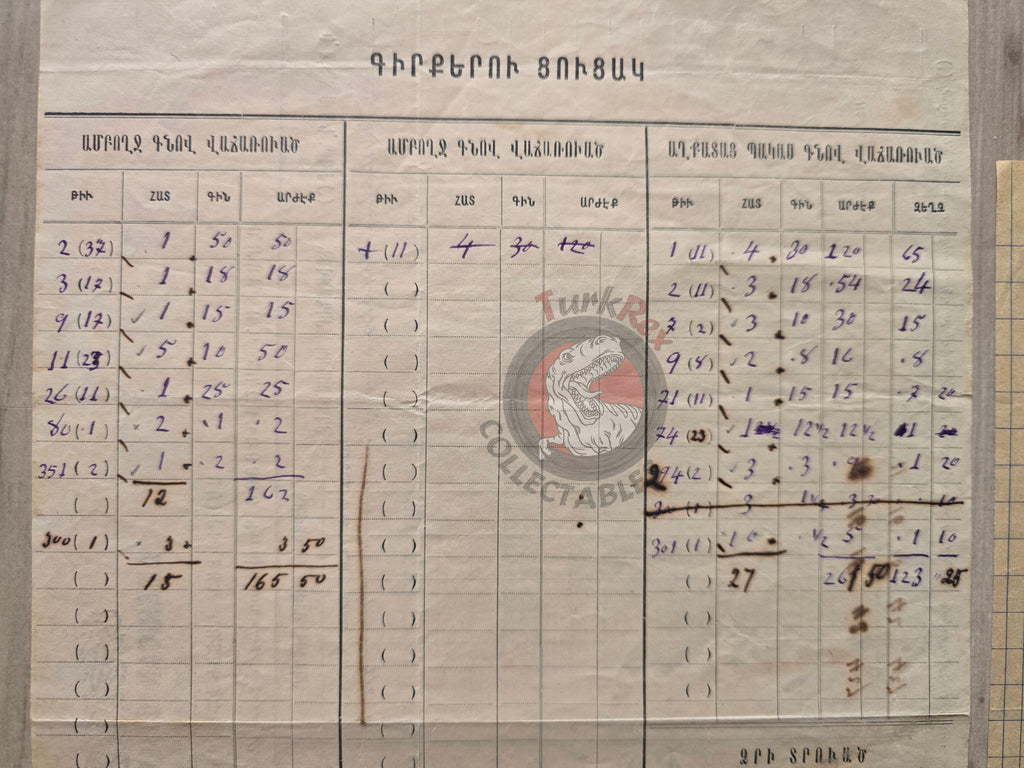 ԳԻՐՔԵՐՈՒ ՑՈՒՑԱԿ
ԱՄԲՈՂՋ ԳՆՈՎ ՎԱՃԱՌՈՒԱԾ
ԹԻՒ ՀԱՏ ԳԻՆ ԱՐԺԷՔ
2 (37) 1 50 50
3 (17) 1 18 18
9 (17) 1 15 15
11 (23) 5 10 50
26 (11) 1 25 25
80 (1) 2 1 2
351 (2) 1 2 2
( ) 12 162
300 (1) 3 3 50
( ) 15 165 50
( )
( )
( )
( )
( )
ԱՄԲՈՂՋ ԳՆՈՎ ՎԱՃԱՌՈՒԱԾ
ԹԻՒ ՀԱՏ ԳԻՆ ԱՐԺԷՔ
1 (11) 4 30 120
( )
( )
( )
( )
( )
( )
( )
( )
( )
( )
( )
( )
( )
( )
ԱՂՔԱՏԱՑ ՊԱԿԱՍ ԳՆՈՎ ՎԱՃԱՌՈՒԱԾ
ԹԻՒ ՀԱՏ ԳԻՆ ԱՐԺԷՔ ԶԵՂՉ
1 (11) 4 30 120 65
2 (11) 3 18 54 24
7 (2) 3 10 30 15
9 (8) 2 8 16 8
71 (11) 1 15 15 7 20
74 (23) 1 12 1/2 12 1/2
294 (2) 3 3 9 1 20
3 10
301 (1) 10 1/2 5 1 10
( ) 27 261 50 123 25
( )
( )
( )
ՁՐԻ ՏՐՈՒԱԾ
TurkRex
COLLECTABLES